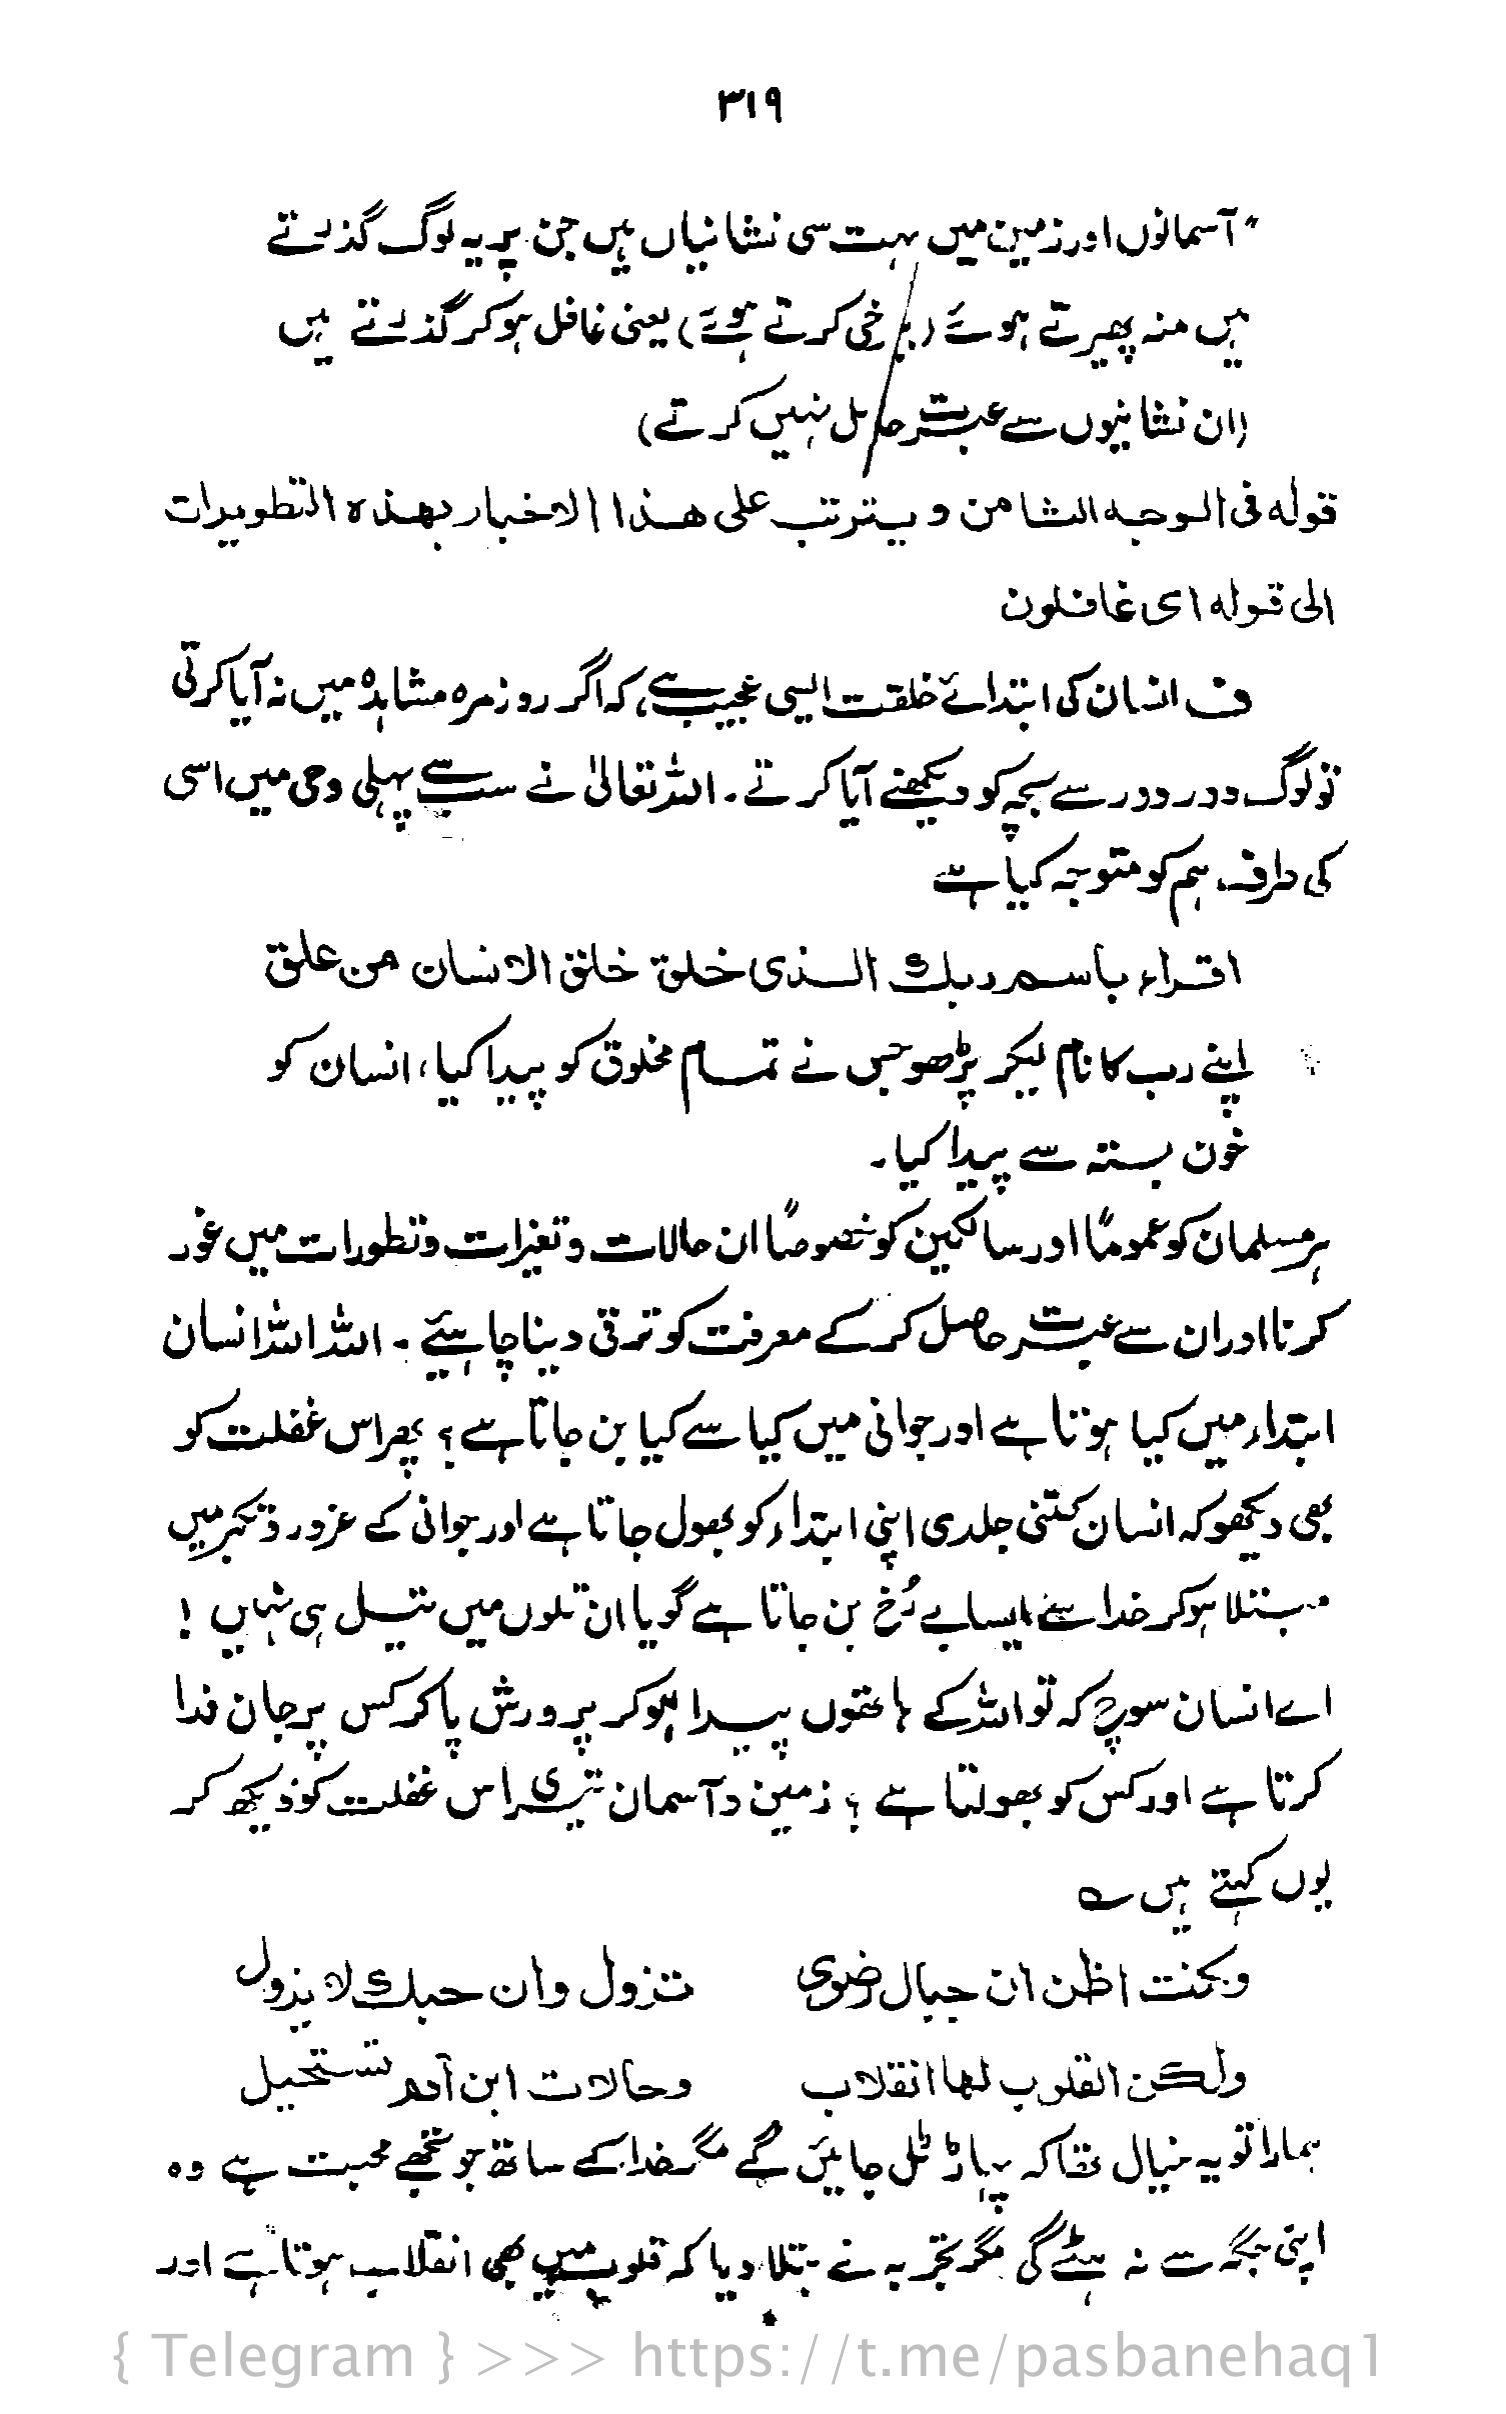 ۳۱۹
"آسمانوں اور زمین میں بہت سی نشانیاں ہیں جن پر یہ لوگ گذرتے
ہیں منہ پھیرتے ہوئے (بے رخی کرتے ہوئے) یعنی غافل ہو کر گذرتے ہیں
(ان نشانیوں سے عبرت حاصل نہیں کرتے)
قوله فی الوجه الثامن و یترتب علی هذا الاخبار بهذه التطویرات
الی قوله ای غافلون
ف انسان کی ابتدائے خلقت ایسی عجیب ہے، کہ اگر روز مرہ مشاہدہ میں نہ آیا کرتی
تو لوگ دور دور سے بچہ کو دیکھنے آیا کرتے۔ اللہ تعالیٰ نے سب سے پہلی وحی میں اسی
کی طرف ہم کو متوجہ کیا ہے
اقراء باسم ربك الذی خلق خلق الانسان من علق
اپنے رب کا نام لیکر پڑھو جس نے تمام مخلوق کو پیدا کیا، انسان کو
خون بستہ سے پیدا کیا۔
ہر مسلمان کو عموماً اور سالکین کو خصوصاً ان حالات و تغیرات و تطورات میں غور
کرنا اور ان سے عبرت حاصل کر کے معرفت کو ترقی دینا چاہیئے۔ اللہ اللہ انسان
ابتداء میں کیا ہوتا ہے اور جوانی میں کیا سے کیا بن جاتا ہے؟ پھر اس غفلت کو
بھی دیکھو کہ انسان کتنی جلدی اپنی ابتداء کو بھول جاتا ہے اور جوانی کے غرور و تکبر میں
مبتلا ہو کر خدا سے ایسا بے رُخ بن جاتا ہے گویا ان تلوں میں تیل ہی نہیں!
اے انسان سوچ کہ تو اللہ کے ہاتھوں پیدا ہو کر پرورش پا کر کس پر جان فدا
کرتا ہے اور کس کو بھولتا ہے؟ زمین و آسمان تیری اس غفلت کو دیکھ کر
یوں کہتے ہیں ؎
وکنت اظن ان جبال رضوی تزول وان حبك لا یزول
ولکن القلوب لها انقلاب وحالات ابن آدم تستحیل
ہمارا تو یہ خیال تھا کہ پہاڑ ٹل جائیں گے مگر خدا کے ساتھ جو تجھے محبت ہے وہ
اپنی جگہ سے نہ ہٹے گی مگر تجربہ نے بتلا دیا کہ قلوب میں بھی انقلاب ہوتا ہے اور
{ Telegram } >>> https://t.me/pasbanehaq1